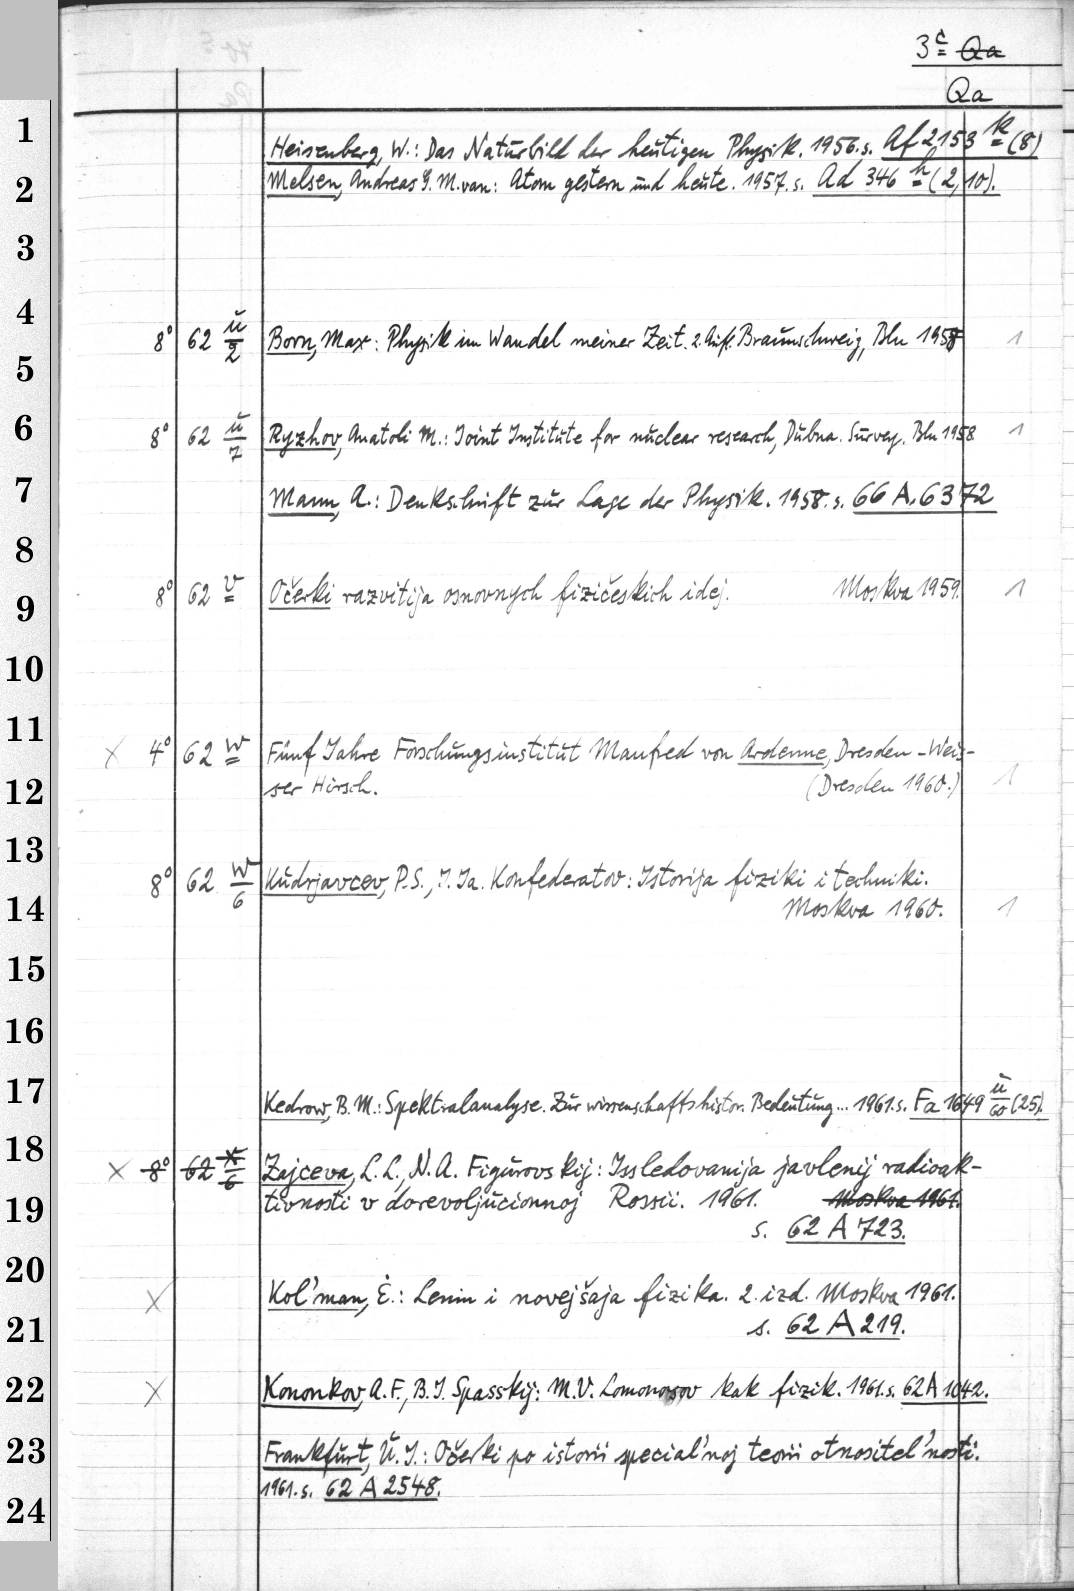 3c̳ Qa
Qa
1 Heisenberg, W.: Das Naturbild der heutigen Physik. 1956. s. Af 2153 k (8)
2 Melsen, Andreas G. M. van: Atom gestern und heute. 1957. s. Ad 346 h (2,10).
3
4
8° 62 ü/2 Born, Max: Physik im Wandel meiner Zeit. 2. Aufl. Braunschweig, Bln 1958 1
5
6 8° 62 ü/7 Ryzhov, Anatoli M.: Joint Institute for nuclear research, Dubna. Survey. Bln 1958 1
7 Mann, A.: Denkschrift zur Lage der Physik. 1958. s. 66 A. 6372
8
9 8° 62 v Očerki razvitija osnovnych fizičeskich idej. Moskva 1959. 1
10
11 X 4° 62 w Fünf Jahre Forschungsinstitut Manfred von Ardenne, Dresden-Weis-
12 ser Hirsch. (Dresden 1960.) 1
13
8° 62 w/6 Kudrjavcev, P.S., I. Ja. Konfederatov: Istorija fiziki i techniki.
14 Moskva 1960. 1
15
16
17 Kedrow, B. M.: Spektralanalyse. Zur wissenschaftshistor. Bedeutung... 1961. s. Fa 1649 ü/60 (25).
18 X 8° 62 x/6 Zajceva, L. L., N. A. Figurovskij: Issledovanija javlenij radioak-
19 tivnosti v dorevoljucionnoj Rossii. 1961. Moskva 1961.
s. 62 A 723.
20 X Kol'man, Ė.: Lenin i novejšaja fizika. 2. izd. Moskva 1961.
21 s. 62 A 219.
22 X Kononkov, A. F., B. I. Spasskij: M. V. Lomonosov kak fizik. 1961. s. 62 A 1042.
23 Frankfurt, U. I.: Očerki po istorii special'noj teorii otnositel'nosti.
1961. s. 62 A 2548.
24